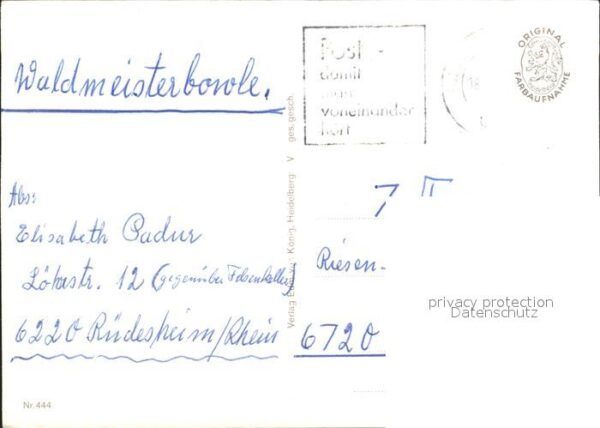 Waldmeisterbowle.
Post -
damit
man
voneinander
hört
ORIGINAL
FARBAUFNAHME
Abs:
Elisabeth Padur
6220 Rüdesheim/Rhein
12 (gegenüber Felsenkeller)
ges. gesch.
V
König, Heidelberg
Verlag
Riesen-
6720
privacy protection
Datenschutz
Nr. 444